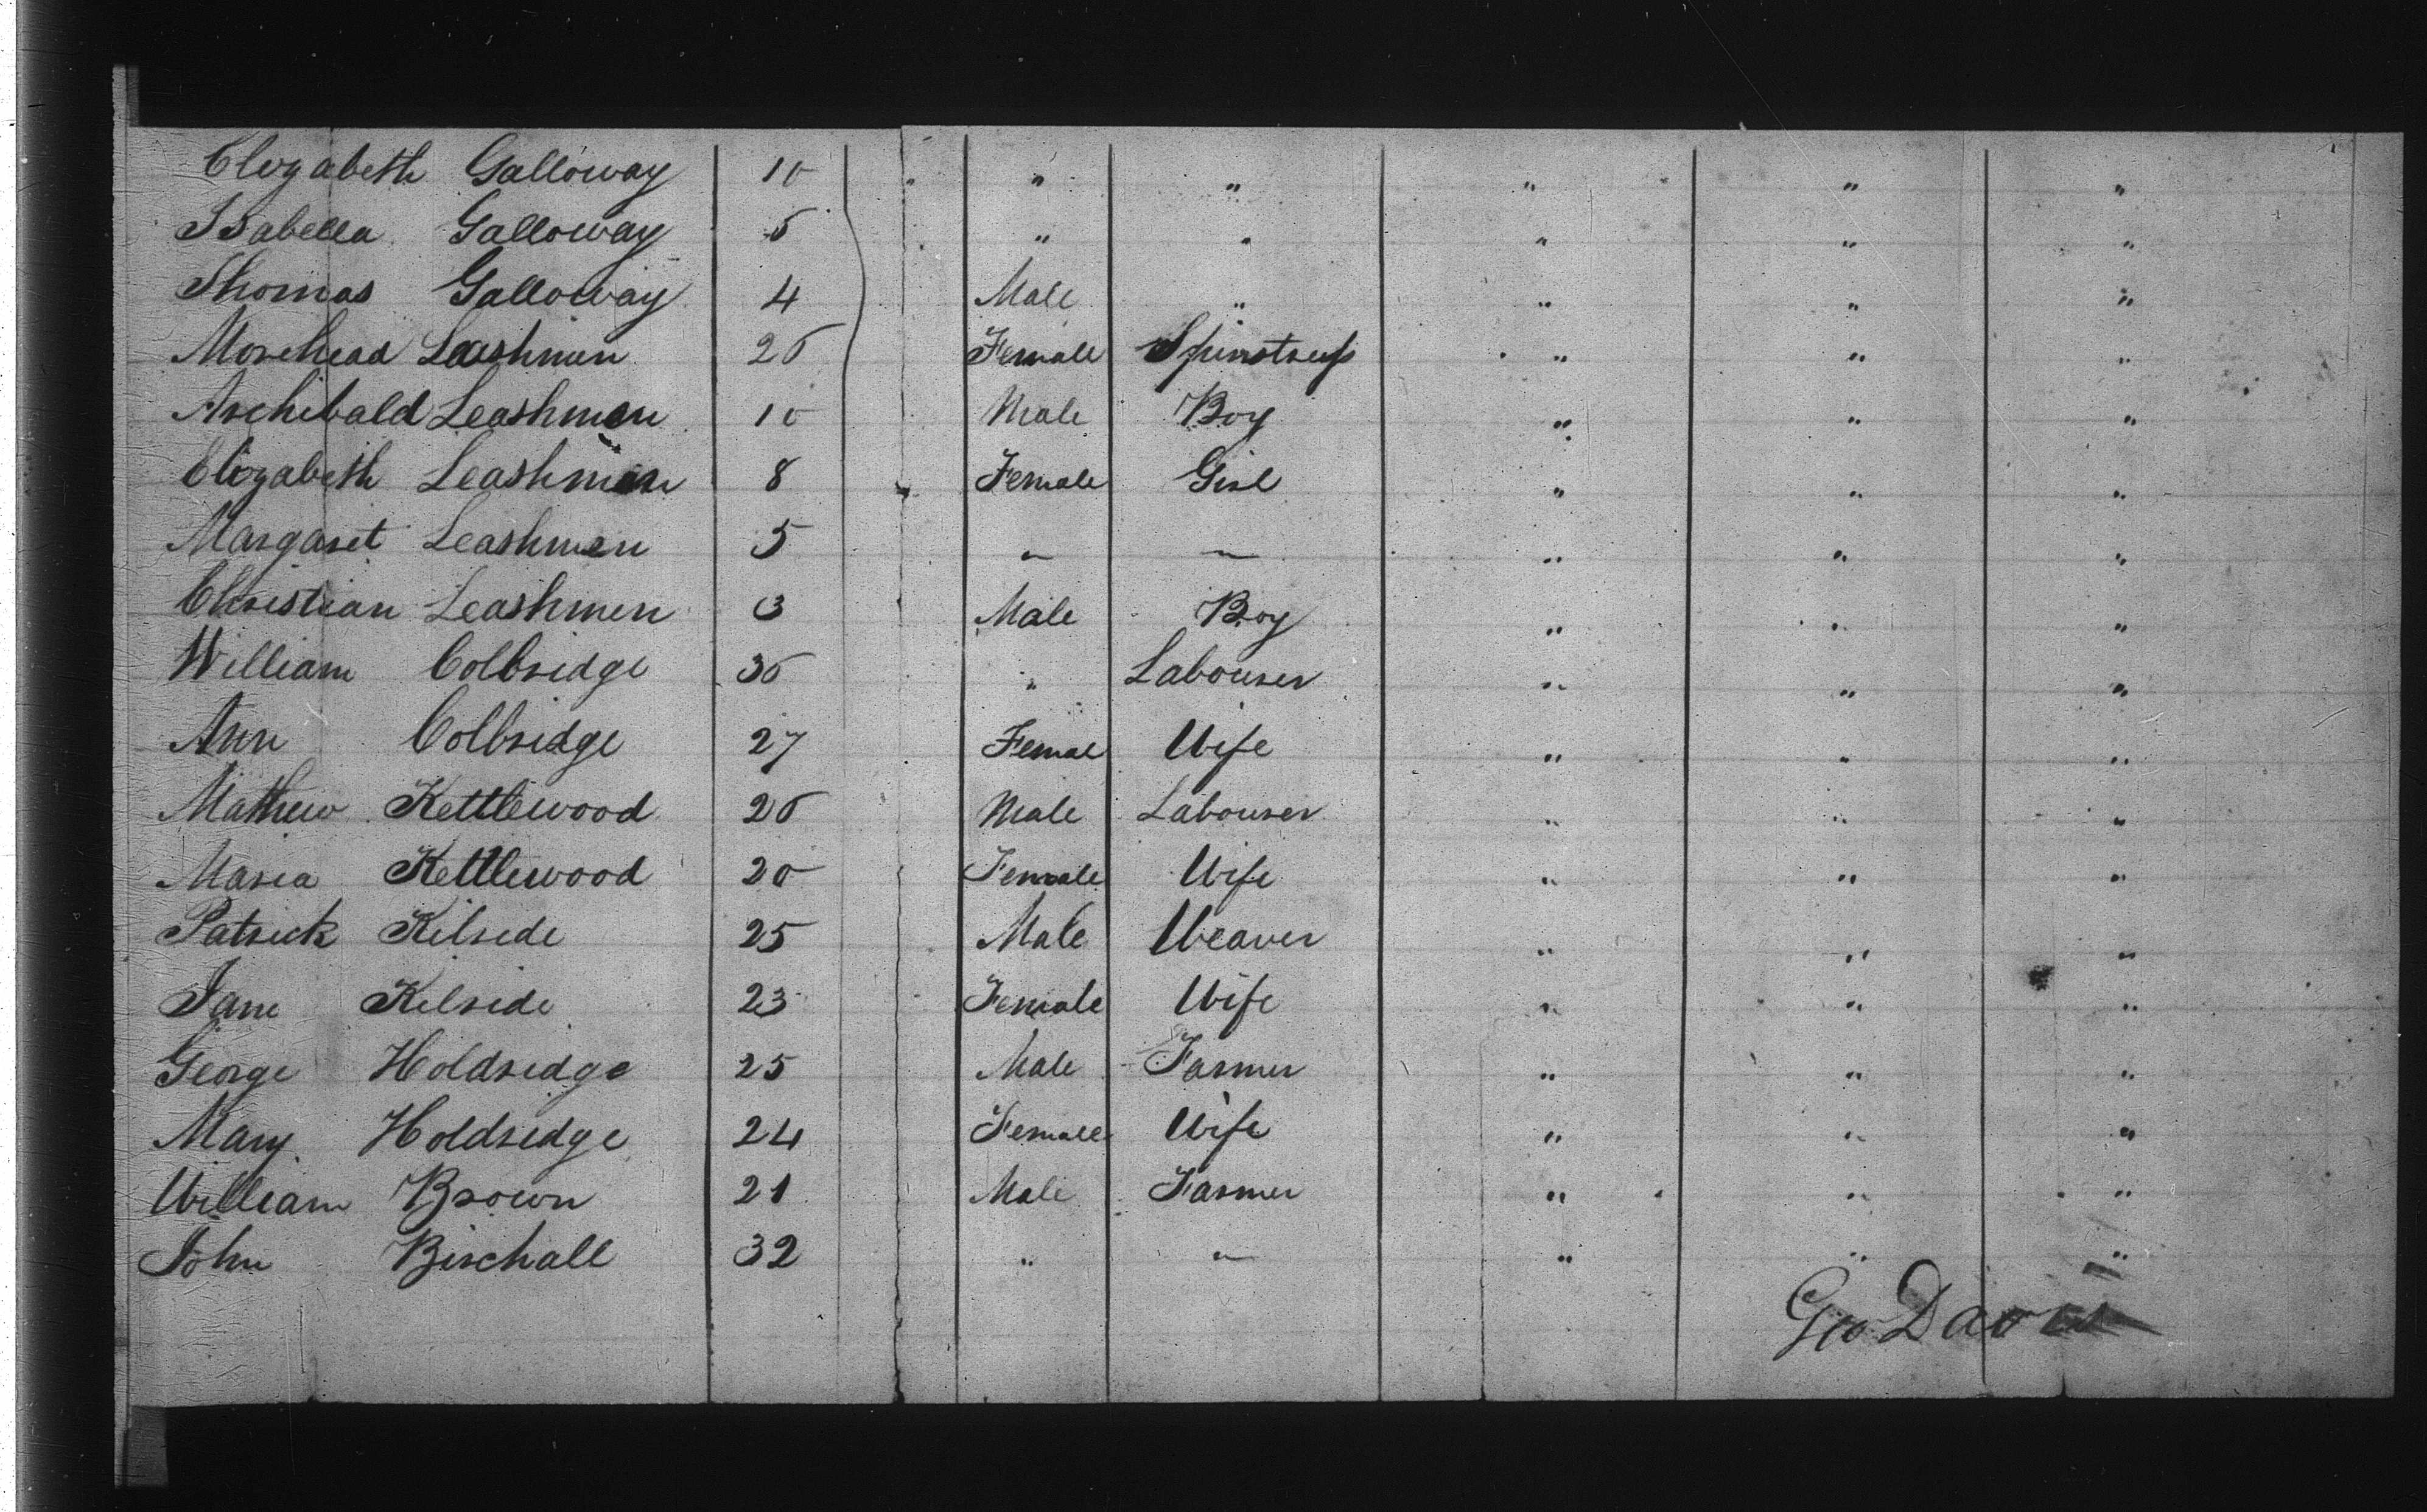 Elizabeth Galloway 10 " " " " "
Isabella Galloway 6 " " " " "
Thomas Galloway 4 Male " " " "
Morehead Leashman 26 Female Spinstress " " "
Archibald Leashmen 10 Male Boy " " "
Elizabeth Leashmen 8 Female Girl " " "
Margaret Leashmen 5 " " " " "
Christian Leashmen 3 Male Boy " " "
William Colbridge 36 " Labourer " " "
Ann Colbridge 27 Femal Wife " " "
Mathew Kettlewood 26 Male Labourer " " "
Maria Kettlewood 20 Female Wife " " "
Patrick Kilride 25 Male Weaver " " "
Jane Kilride 23 Female Wife " " "
George Holdridge 25 Male Farmer " " "
Mary Holdridge 24 Female Wife " " "
William Brown 21 Male Farmer " " "
John Birchall 32 " " " " "
Geo Davis